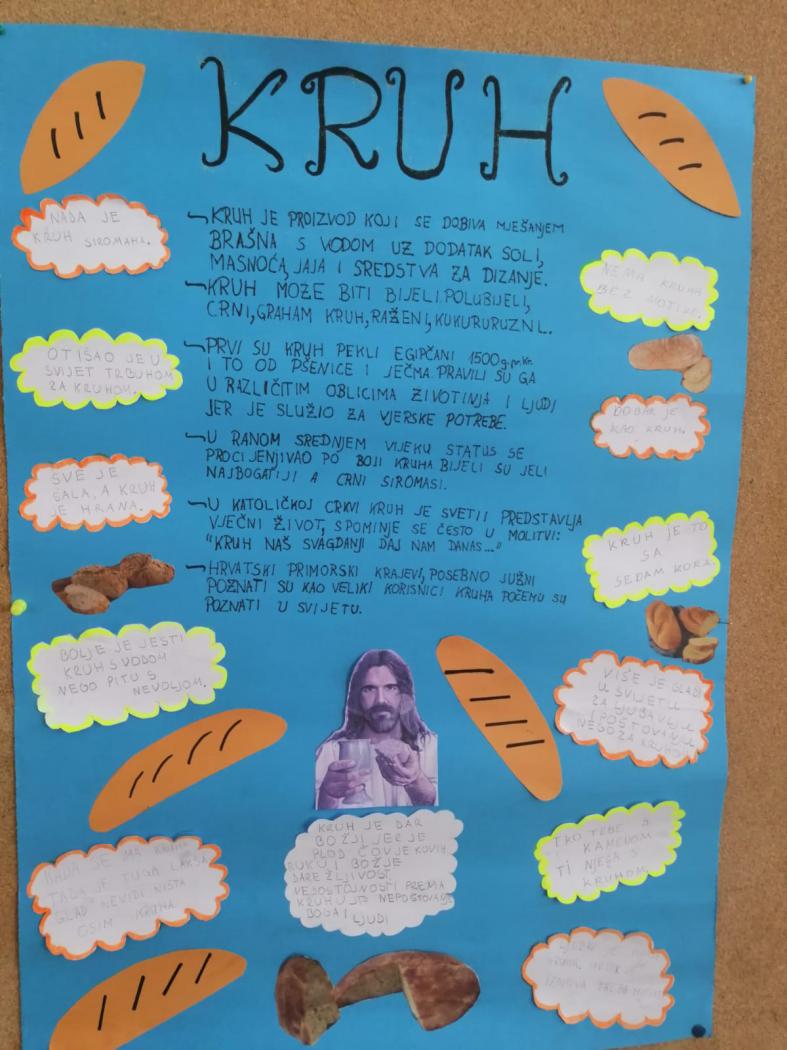 KRUH
KRUH JE PROIZVOD KOJI SE DOBIVA MJEŠANJEM
BRAŠNA S VODOM UZ DODATAK SOLI,
MASNOĆA, JAJA I SREDSTVA ZA DIZANJE.
KRUH MOŽE BITI BIJELI, POLUBIJELI,
CRNI, GRAHAM KRUH, RAŽENI, KUKURURUZNI.
PRVI SU KRUH PEKLI EGIPČANI 1500g.pr.Kr.
I TO OD PŠENICE I JEČMA. PRAVILI SU GA
U RAZLIČITIM OBLICIMA ŽIVOTINJA I LJUDI
JER JE SLUŽIO ZA VJERSKE POTREBE.
U RANOM SREDNJEM VIJEKU STATUS SE
PROCIJENJIVAO PO BOJI KRUHA BIJELI SU JELI
NAJBOGATIJI A CRNI SIROMASI.
U KATOLIČKOJ CRKVI KRUH JE SVETI I PREDSTAVLJA
VJEČNI ŽIVOT, SPOMINJE SE ČESTO U MOLITVI:
"KRUH NAŠ SVAGDANJI DAJ NAM DANAS..."
HRVATSKI PRIMORSKI KRAJEVI, POSEBNO JUŽNI
POZNATI SU KAO VELIKI KORISNICI KRUHA POČEMU SU
POZNATI U SVIJETU.
NADA JE
KRUH SIROMAHA.
OTIŠAO JE U
SVIJET TRBUHOM
ZA KRUHOM.
SVE JE
ŠALA, A KRUH
JE HRANA.
BOLJE JE JESTI
KRUH S VODOM
NEGO PITU S
NEVOLJOM.
KADA SE IMA KRUHA
TADA JE TUGA LAKŠA
GLAD NEVIDI NIŠTA
OSIM KRUHA.
KRUH JE DAR
BOŽJI JER JE
PLOD ČOVJEKOVIH
RUKU I BOŽJE
DAREŽLJIVOSTI
NEDOSTOJNOSTI PREMA
KRUHU JE NEPOŠTOVANJE
BOGA I
LJUDI
NEMA KRUHA
BEZ MOTIKE.
DOBAR JE
KAO KRUH.
KRUH JE TO
SA
SEDAM KORA.
VIŠE JE GLADI
U SVIJETU
ZA LJUBAVLJU
I POŠTOVANJU
NEGO ZA KRUHOM.
TKO TEBE S
KAMENOM
TI NJEGA S
KRUHOM.